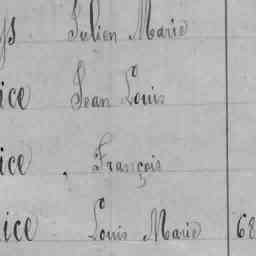 ys Julien Marie
ice Jean Louis
ice François
ice Louis Marie 68